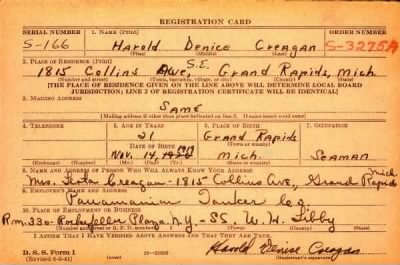 REGISTRATION CARD
SERIAL NUMBER 1. NAME (Print) ORDER NUMBER
S-166 Harold Denice Creagan S-3275A
(First) (Middle) (Last)
2. PLACE OF RESIDENCE (Print)
S.E.
1815 Collins Ave, Grand Rapids, Mich.
(Number and street) (Town, township, village, or city) (County) (State)
[THE PLACE OF RESIDENCE GIVEN ON THE LINE ABOVE WILL DETERMINE LOCAL BOARD
JURISDICTION; LINE 2 OF REGISTRATION CERTIFICATE WILL BE IDENTICAL]
3. MAILING ADDRESS
SAME
[Mailing address if other than place indicated on line 2. If same insert word same]
4. TELEPHONE 5. AGE IN YEARS 6. PLACE OF BIRTH 7. OCCUPATION
21 Grand Rapids
DATE OF BIRTH (Town or county)
1919
Nov. 14, Mich. Seaman
(Exchange) (Number) (Mo.) (Day) (Yr.) (State or country)
8. NAME AND ADDRESS OF PERSON WHO WILL ALWAYS KNOW YOUR ADDRESS
Mich
Mrs. Creagan - 1815 Collins Ave., Grand Rapids
9. EMPLOYER'S NAME AND ADDRESS
Panamanian Tanker Co.
10. PLACE OF EMPLOYMENT OR BUSINESS
Rm. 330 Rockefeller Plaza N.Y. - SS. W. H. Libby
I AFFIRM THAT I HAVE VERIFIED ABOVE ANSWERS AND THAT THEY ARE TRUE.
D. S. S. Form 1
(Revised 6-9-41) Harold Denice Creagan